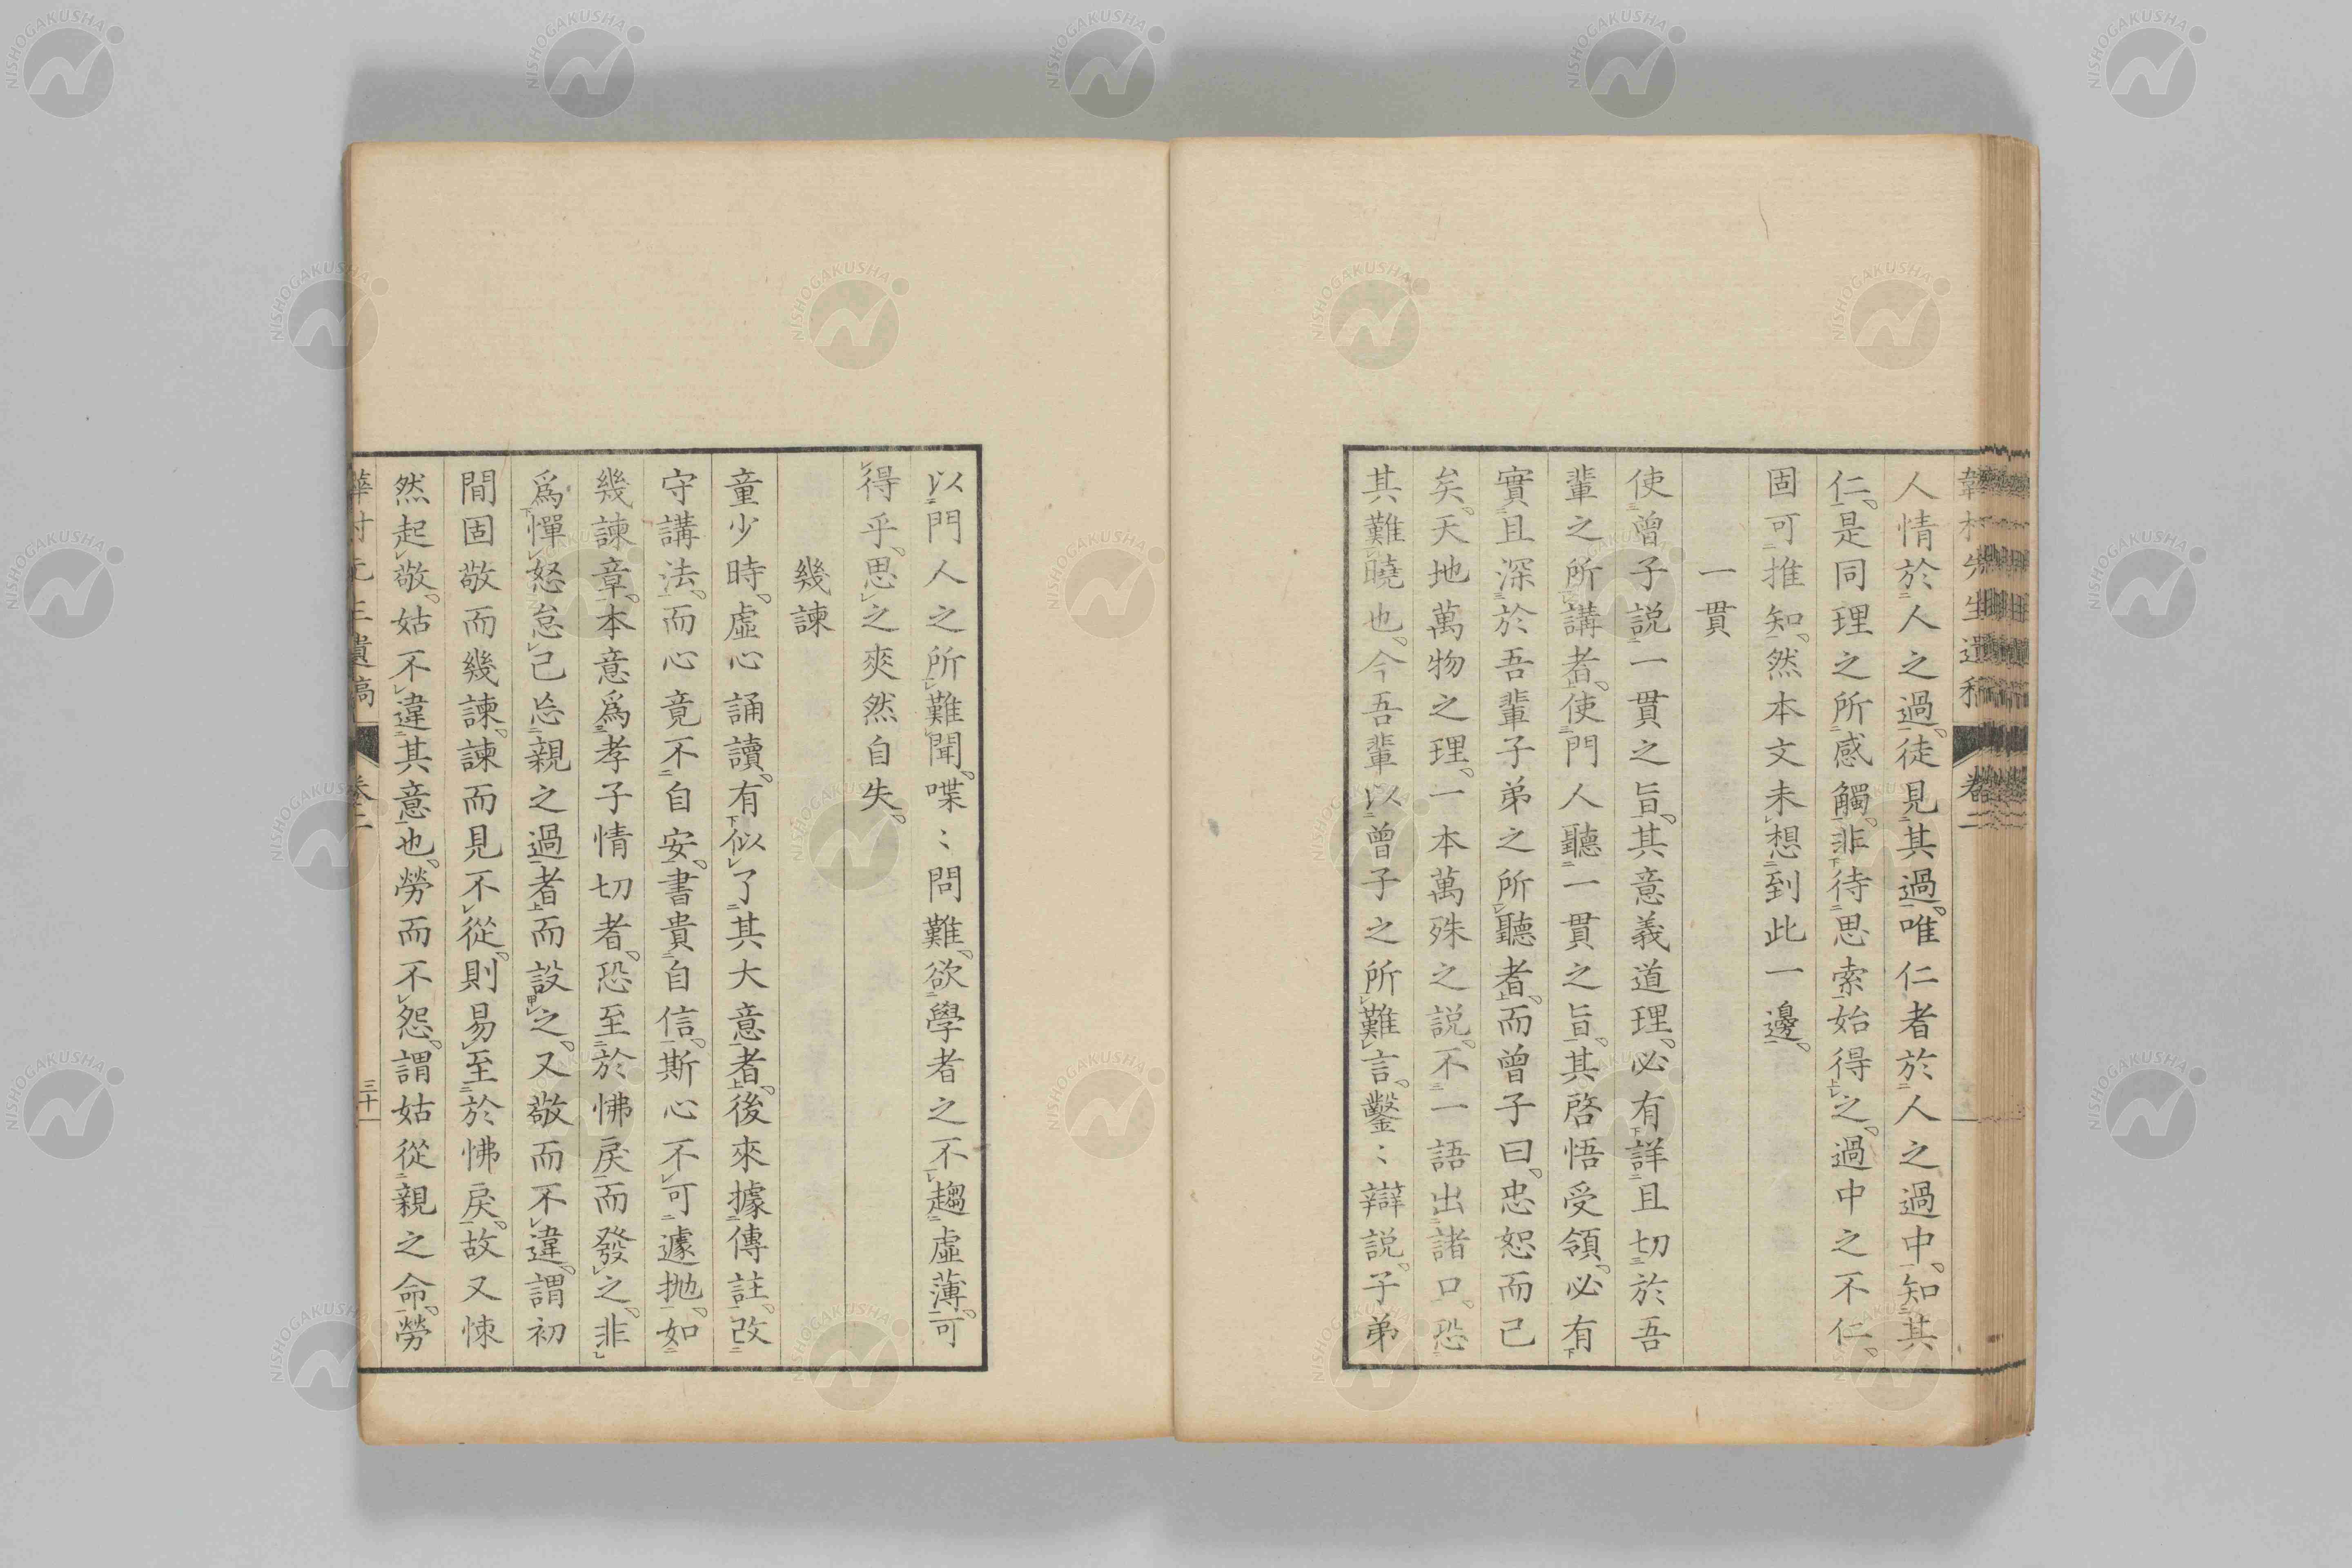 人情於人之過。徒見其過。唯仁者於人之過中。知其
仁。是同理之所感觸。非待思索始得之。過中之不仁。
固可推知。然本文未想到此一邊。
一貫
使曾子説一貫之旨。其意義道理。必有詳且切於吾
輩之所講者。使門人聽一貫之旨。其啓悟受領。必有
實且深於吾輩子弟之所聽者。而曾子曰。忠恕而已
矣。天地萬物之理。一本萬殊之説。不一語出諸口。恐
其難曉也。今吾輩以曾子之所難言。鑿〻辯説。子弟
以門人之所難聞。喋〻問難。欲學者之不趨虛薄。可
得乎。思之爽然自失。
幾諫
童少時。虛心誦讀。有似了其大意者。後來據傳註。改
守講法。而心竟不自安。書貴自信。斯心不可遽抛。如
幾諫章。本意爲孝子情切者。恐至於怫戾而發之。非
爲憚怒怠己忘親之過者而設之。又敬而不違。謂初
間固敬而幾諫。諫而見不從。則易至於怫戾。故又悚
然起敬。姑不違其意也。勞而不怨。謂姑從親之命。勞
卷二
三十一